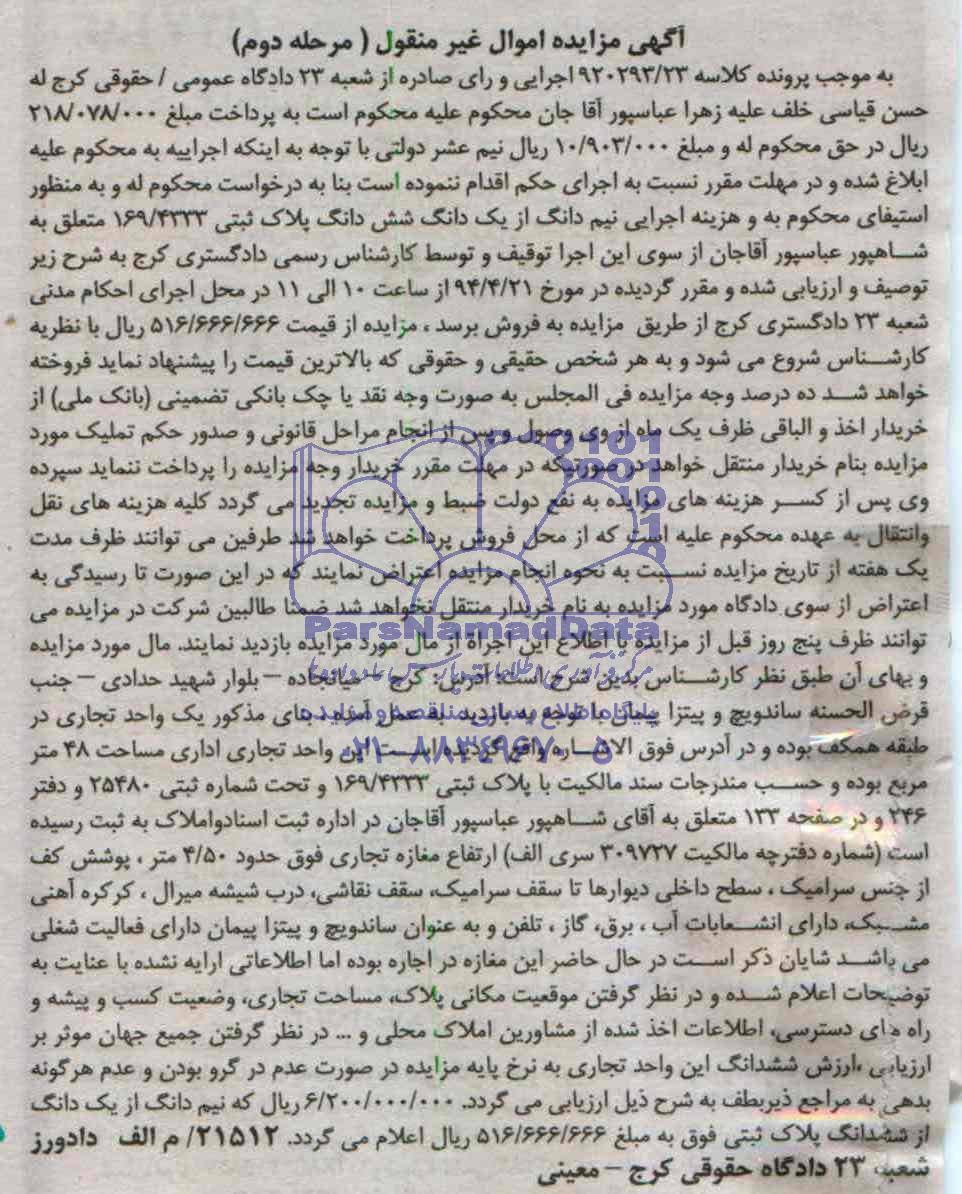 آگهی مزایده اموال غیر منقول ( مرحله دوم)
به موجب پرونده کلاسه ۹۲۰۲۹۳/۲۳ اجرایی و رای صادره از شعبه ۲۳ دادگاه عمومی / حقوقی کرج له
حسن قیاسی خلف علیه زهرا عباسپور آقا جان محکوم علیه محکوم است به پرداخت مبلغ ۲۱۸/۰۷۸/۰۰۰
ریال در حق محکوم له و مبلغ ۱۰/۹۰۳/۰۰۰ ریال نیم عشر دولتی با توجه به اینکه اجراییه به محکوم علیه
ابلاغ شده و در مهلت مقرر نسبت به اجرای حکم اقدام ننموده است بنا به درخواست محکوم له و به منظور
استیفای محکوم به و هزینه اجرایی نیم دانگ از یک دانگ شش دانگ پلاک ثبتی ۱۶۹/۴۳۳۳ متعلق به
شاهپور عباسپور آقاجان از سوی این اجرا توقیف و توسط کارشناس رسمی دادگستری کرج به شرح زیر
توصیف و ارزیابی شده و مقرر گردیده در مورخ ۹۴/۴/۲۱ از ساعت ۱۰ الی ۱۱ در محل اجرای احکام مدنی
شعبه ۲۳ دادگستری کرج از طریق مزایده به فروش برسد ، مزایده از قیمت ۵۱۶/۶۶۶/۶۶۶ ریال با نظریه
کارشناس شروع می شود و به هر شخص حقیقی و حقوقی که بالاترین قیمت را پیشنهاد نماید فروخته
خواهد شد ده درصد وجه مزایده فی المجلس به صورت وجه نقد یا چک بانکی تضمینی (بانک ملی) از
خریدار اخذ و الباقی ظرف یک ماه از وی وصول و پس از انجام مراحل قانونی و صدور حکم تملیک مورد
مزایده بنام خریدار منتقل خواهد در صورتیکه در مهلت مقرر خریدار وجه مزایده را پرداخت ننماید سپرده
وی پس از کسر هزینه های مزایده به نفع دولت ضبط و مزایده تجدید می گردد کلیه هزینه های نقل
وانتقال به عهده محکوم علیه است که از محل فروش پرداخت خواهد شد طرفین می توانند ظرف مدت
یک هفته از تاریخ مزایده نسبت به نحوه انجام مزایده اعتراض نمایند که در این صورت تا رسیدگی به
اعتراض از سوی دادگاه مورد مزایده به نام خریدار منتقل نخواهد شد ضمنا طالبین شرکت در مزایده می
ParsNamadData
توانند ظرف پنج روز قبل از مزایده با اطلاع این اجراة از مال مورد مزایده بازدید نمایند. مال مورد مزایده
و بهای آن طبق نظر کارشناس بدین شرح است: آدرس: کرج – میانجاده – بلوار شهید حدادی – جنب
قرض الحسنه ساندویچ و پیتزا پیمان با توجه به بازدید به عمل آمده های مذکور یک واحد تجاری در
طبقه همکف بوده و در آدرس فوق الاشاره واقع گردیده است این واحد تجاری اداری مساحت ۴۸ متر
۰۲۱-۸۸۳۴۹۶۷۰-۵
مربع بوده و حسب مندرجات سند مالکیت با پلاک ثبتی ۱۶۹/۴۳۳۳ و تحت شماره ثبتی ۲۵۴۸۰ و دفتر
۲۴۶ و در صفحه ۱۳۳ متعلق به آقای شاهپور عباسپور آقاجان در اداره ثبت اسنادواملاک به ثبت رسیده
است (شماره دفترچه مالکیت ۳۰۹۷۲۷ سری الف) ارتفاع مغازه تجاری فوق حدود ۴/۵۰ متر ، پوشش کف
از جنس سرامیک ، سطح داخلی دیوارها تا سقف سرامیک، سقف نقاشی، درب شیشه میرال ، کرکره آهنی
مشبک، دارای انشعابات آب ، برق، گاز ، تلفن و به عنوان ساندویچ و پیتزا پیمان دارای فعالیت شغلی
می باشد شایان ذکر است در حال حاضر این مغازه در اجاره بوده اما اطلاعاتی ارایه نشده با عنایت به
توضیحات اعلام شده و در نظر گرفتن موقعیت مکانی پلاک، مساحت تجاری، وضعیت کسب و پیشه و
راه های دسترسی، اطلاعات اخذ شده از مشاورین املاک محلی و ... در نظر گرفتن جمیع جهان موثر بر
ارزیابی ،ارزش ششدانگ این واحد تجاری به نرخ پایه مزایده در صورت عدم در گرو بودن و عدم هرگونه
بدهی به مراجع ذیربطف به شرح ذیل ارزیابی می گردد. ۶/۲۰۰/۰۰۰/۰۰۰ ریال که نیم دانگ از یک دانگ
از ششدانگ پلاک ثبتی فوق به مبلغ ۵۱۶/۶۶۶/۶۶۶ ریال اعلام می گردد. ۲۱۵۱۲/ م الف دادورز
شعبه ۲۳ دادگاه حقوقی کرج – معینی